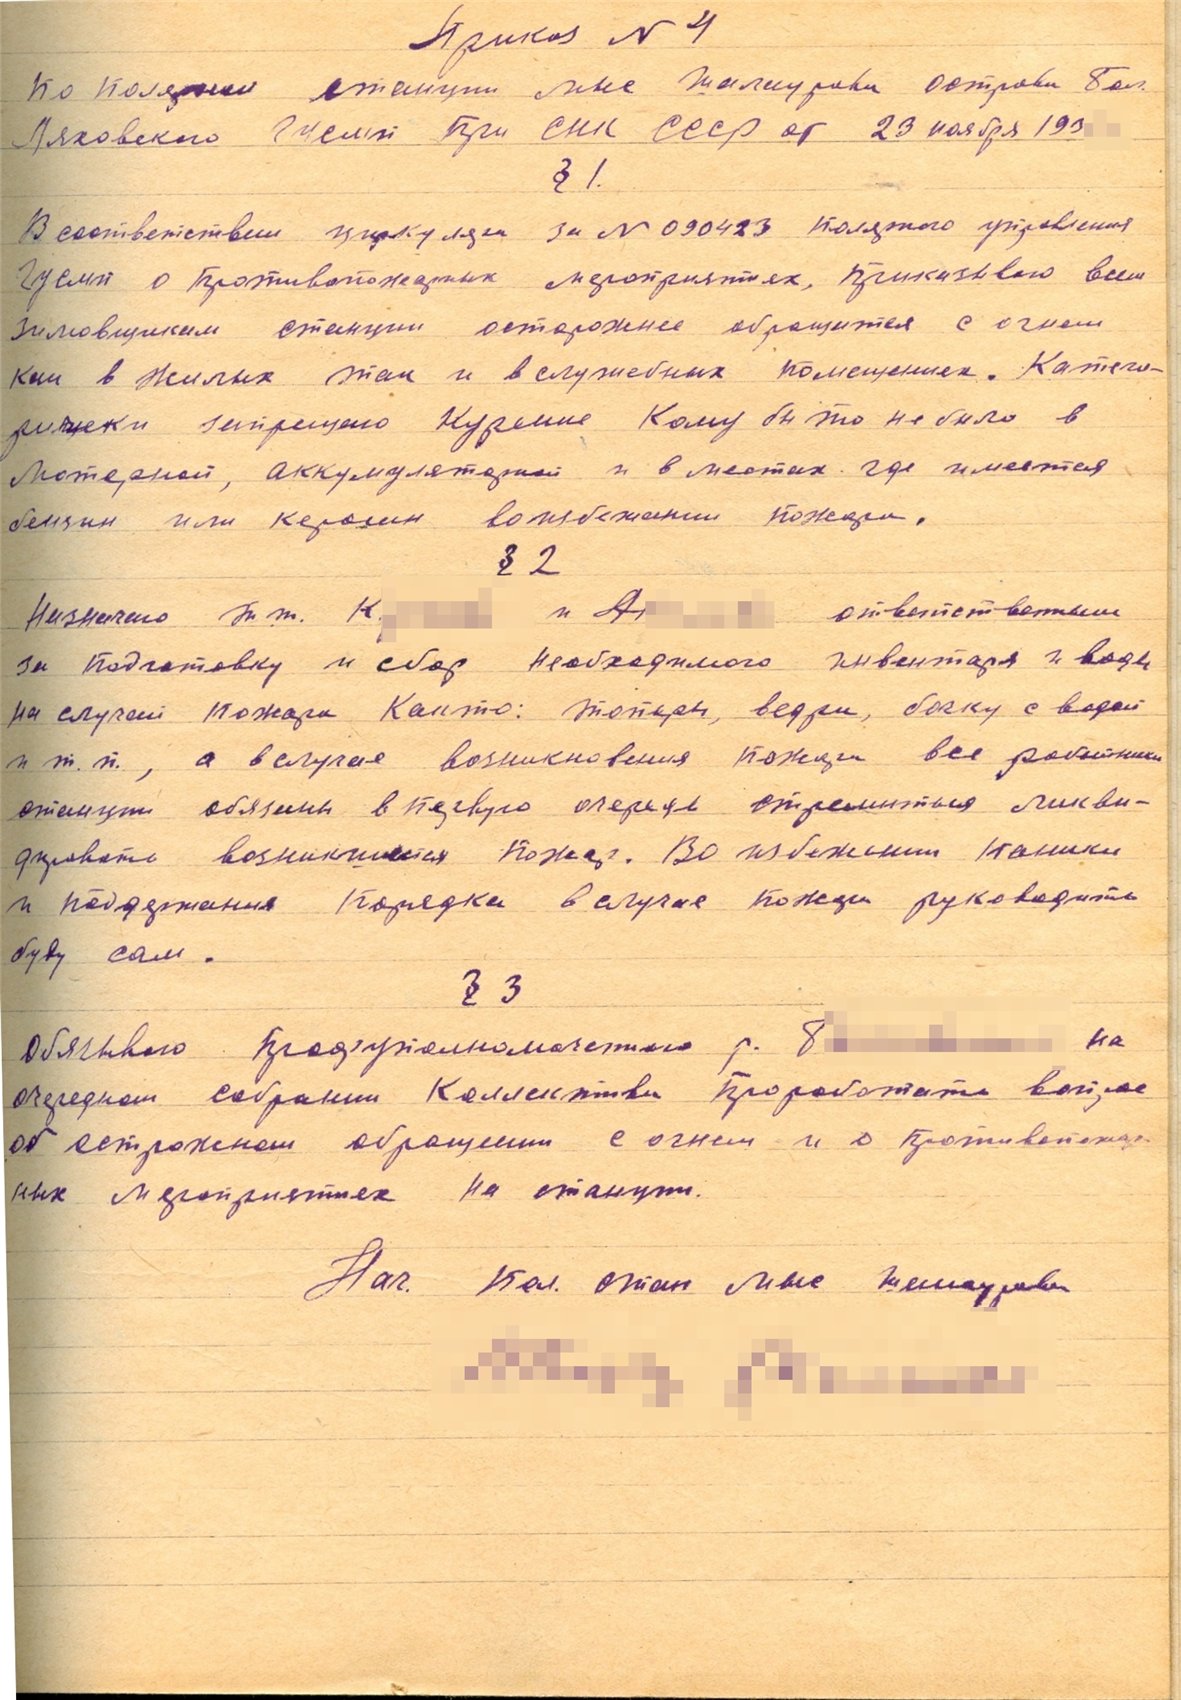 Приказ № 4
По Полярной станции мыс Шалаурова острова Бол.
Ляховского ГУСМП При СНК СССР от 23 ноября 193
§ 1.
В соответствии циркуляра за № 090423 Полярного управления
ГУСМП о Противопожарных мероприятиях, Приказываю всем
зимовщикам станции осторожнее обращатся с огнем
как в жилых так и в служебных помещениях. Катего-
рически запрещаю Курение Кому бы то не было в
Моторной, аккумуляторной и в местах где имеется
бензин или керосин воизбежании пожара.
§ 2
Назначаю т.т. К и ответственными
за Подготовку и сбор необходимого инвентаря и воды
на случай Пожара Както: топоры, ведра, бочку с водой
и т.п., а в случае возникновения Пожара все работники
станции обязаны в Первую очередь стремиться ликви-
дировать возникшийся Пожар. Во избежании Паники
и Поддержания Порядка в случае Пожара руководить
буду сам.
§ 3
Обязываю Профуполномоченного т. Б на
очередном собрании Коллектива Проработать вопрос
об остроженом обращении с огнем и о Противопожар-
ных Мероприятиях на станции.
Нач. Пол. стан мыс Шалаурова